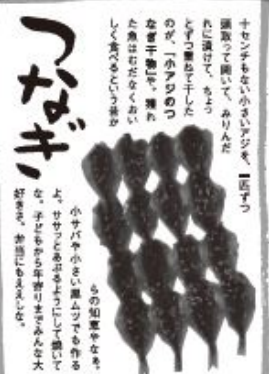 つなぎ
十センチもない小さいアジを、一匹ずつ
頭取って開いて、みりんだ
れに漬けて、ちょっ
とずつ重ねて干した
のが、「小アジのつ
なぎ干物」や。獲れ
た魚はむだなくおい
しく食べるという昔か
らの知恵やなぁ。
小サバや小さい黒ムツでも作る
よ。ササッとあぶるようにして焼いて
な。子どもから年寄りまでみんな大
好きさ。弁当にもええしな。